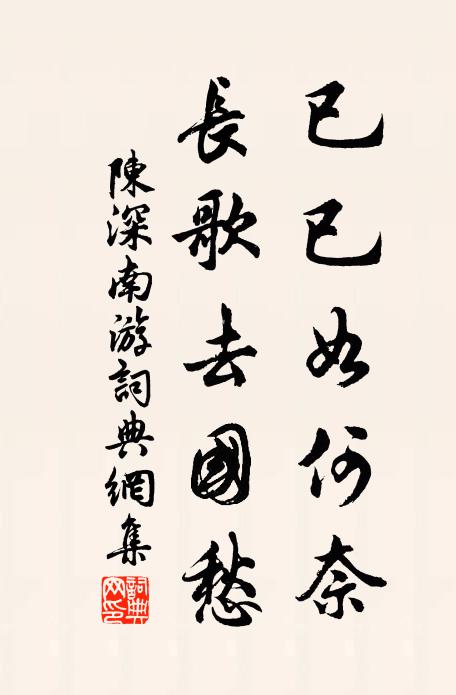 已已如何奈
長歌去國愁
陳深南游詞典網集
詞典網印